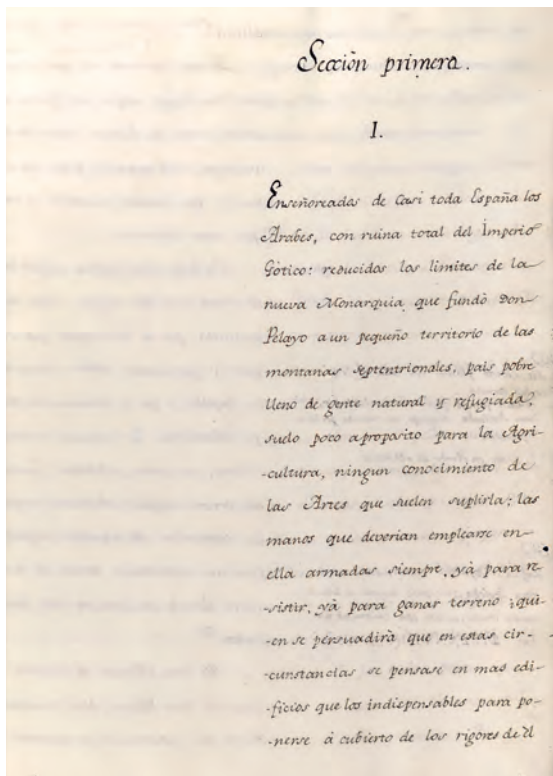 Sección primera.
I.
Enseñoreados de Casi toda España los
Arabes, con ruina total del Imperio
Gótico: reducidos los limites de la
nueva Monarquia que fundó Don
Pelayo a un pequeño territorio de las
montañas septentrionales, pais pobre
lleno de gente natural y refugiada,
suelo poco aproposito para la Agri-
-cultura, ningun conocimiento de
las Artes que suelen suplirla; las
manos que deverian emplearse en
ella armadas siempre, yà para re-
-sistir, yà para ganar terreno ¿qui-
-en se persuadirà que en estas cir-
-cunstancias se pensase en mas edi-
-ficios que los indispensables para po-
-nerse à cubierto de los rigores de el